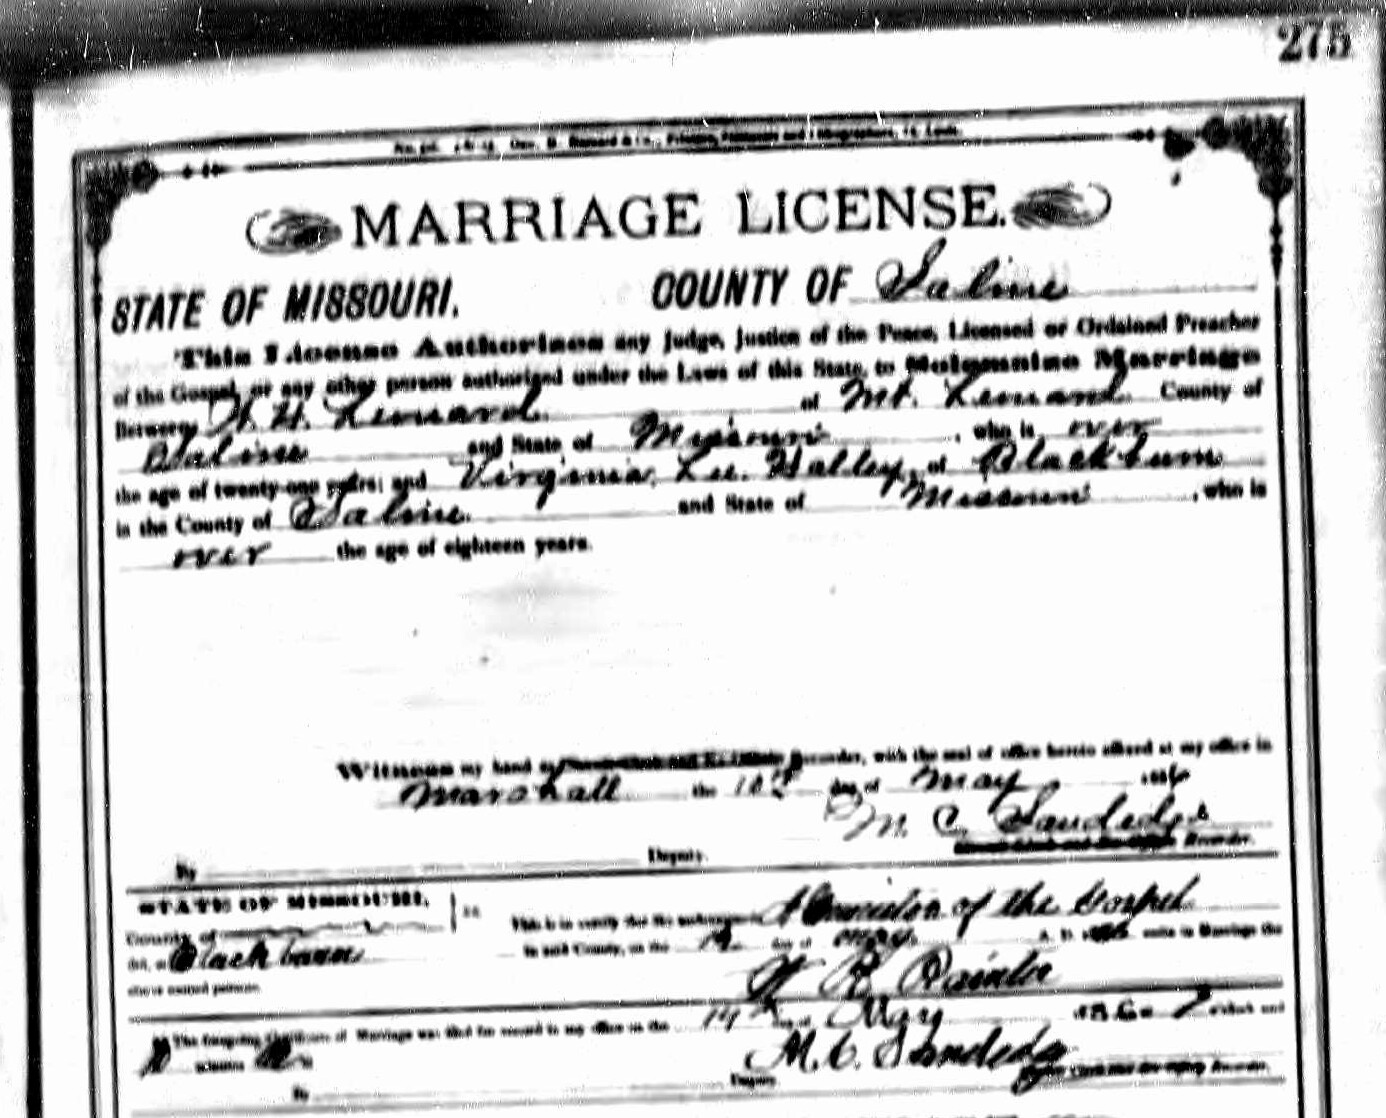 275
MARRIAGE LICENSE.
STATE OF MISSOURI. COUNTY OF Saline
This License Authorizes any Judge, Justice of the Peace, Licensed or Ordained Preacher
of the Gospel, or any other person authorized under the Laws of this State, to Solemnize Marriage
Between H. H. Lenard of Mt. Lenard County of
Saline and State of Missouri, who is over
the age of twenty-one years; and Virginia Lee Halley, of Blackburn
in the County of Saline and State of Missouri, who is
over the age of eighteen years.
Witness my hand as Recorder, with the seal of office hereto affixed at my office in
Marshall the day of May
M. C. Sandidge
Recorder.
By Deputy.
STATE OF MISSOURI,
County of This is to certify that the undersigned A Minister of the Gospel
Blackburn in said County, on the day of May A. D. unite in Marriage the
above named persons.
The foregoing Certificate of Marriage was filed for record in my office on the May
minutes M. C. Sandidge
Recorder.
By Deputy